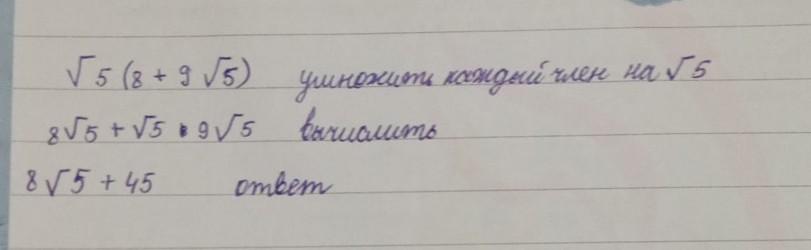 √5 (8 + 9 √5) умножить каждый член на √5
8√5 + √5 • 9√5 вычислить
8√5 + 45 ответ